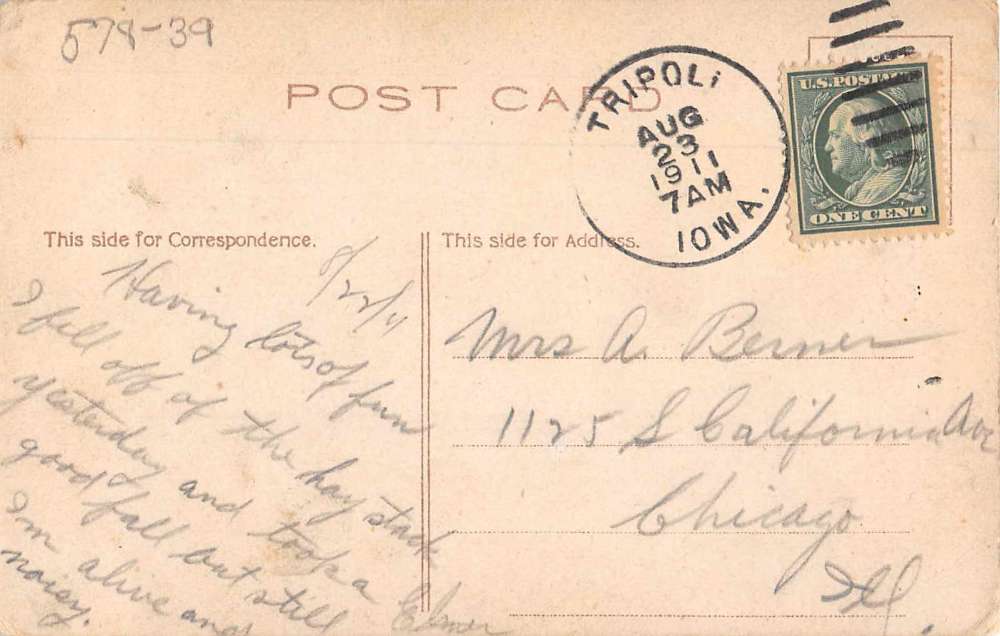 578-39
POST CARD
TRIPOLI
AUG
23
1911
7AM
IOWA.
U.S. POSTAGE
ONE CENT
This side for Correspondence.
This side for Address.
8/22/11
Having lots of fun
I fell off of the hay stack
yesterday and took a
good fall but still
I'm alive and
noisy.
Elmer
Mrs A. Berner
1125 S California Ave
Chicago
Ill